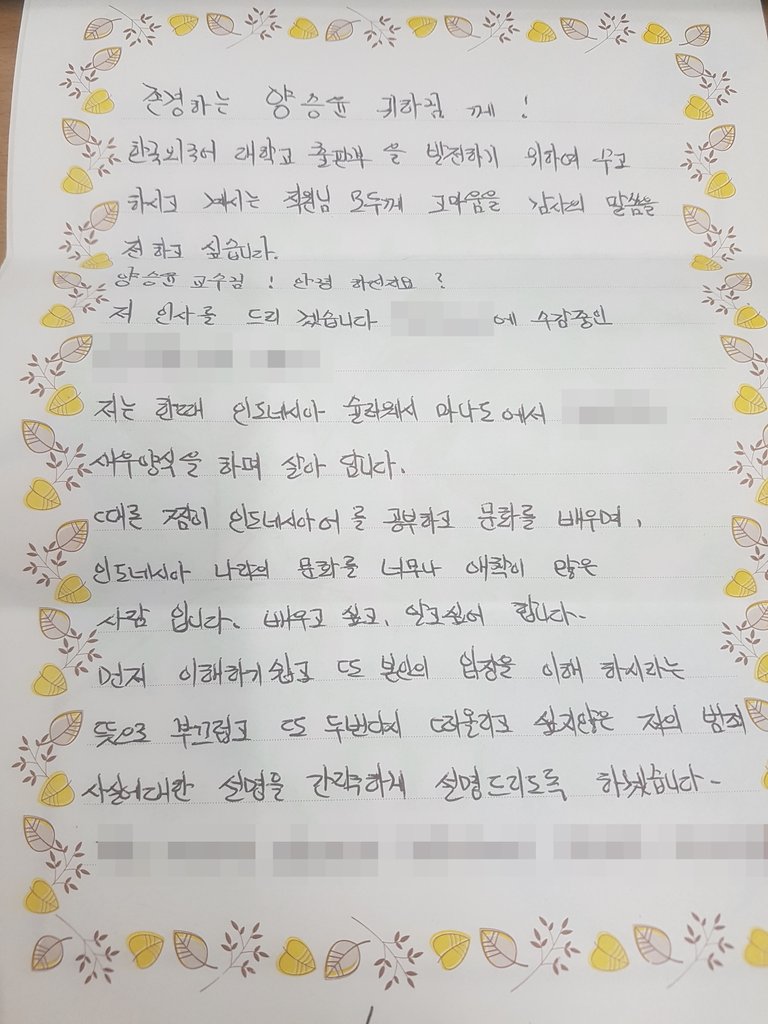 존경하는 양승윤 귀하님 께 !
한국외국어 대학교 출판부 을 발전하기 위하여 수고
하시고 계시는 직원님 모두께 고마움을 감사의 말씀을
전 하고 싶습니다.
양승윤 교수님 ! 안령 하신지요 ?
저 인사를 드리 겠습니다 에 수감중인
저는 한때 인도네시아 술라웨시 마나도 에서
새우양식을 하며 살아 답니다.
따른 짬이 인도네시아어 를 공부하고 문화를 배우며,
인도네시아 나라의 문화를 너무나 애착이 많은
사람 입니다. 배우고 싶고, 알고싶어 합니다.
먼저 이해하기 쉽고 또 본인의 입장을 이해 하시라는
뜻으로 부끄럽고 또 두번다시 떠올리고 싶지않은 저의 범죄
사실에대한 설명을 간략하게 설명드리도록 하겠습니다-